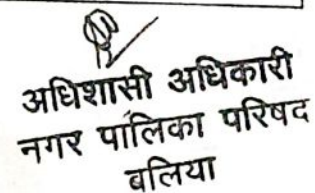 अधिशासी अधिकारी
नगर पालिका परिषद
बलिया